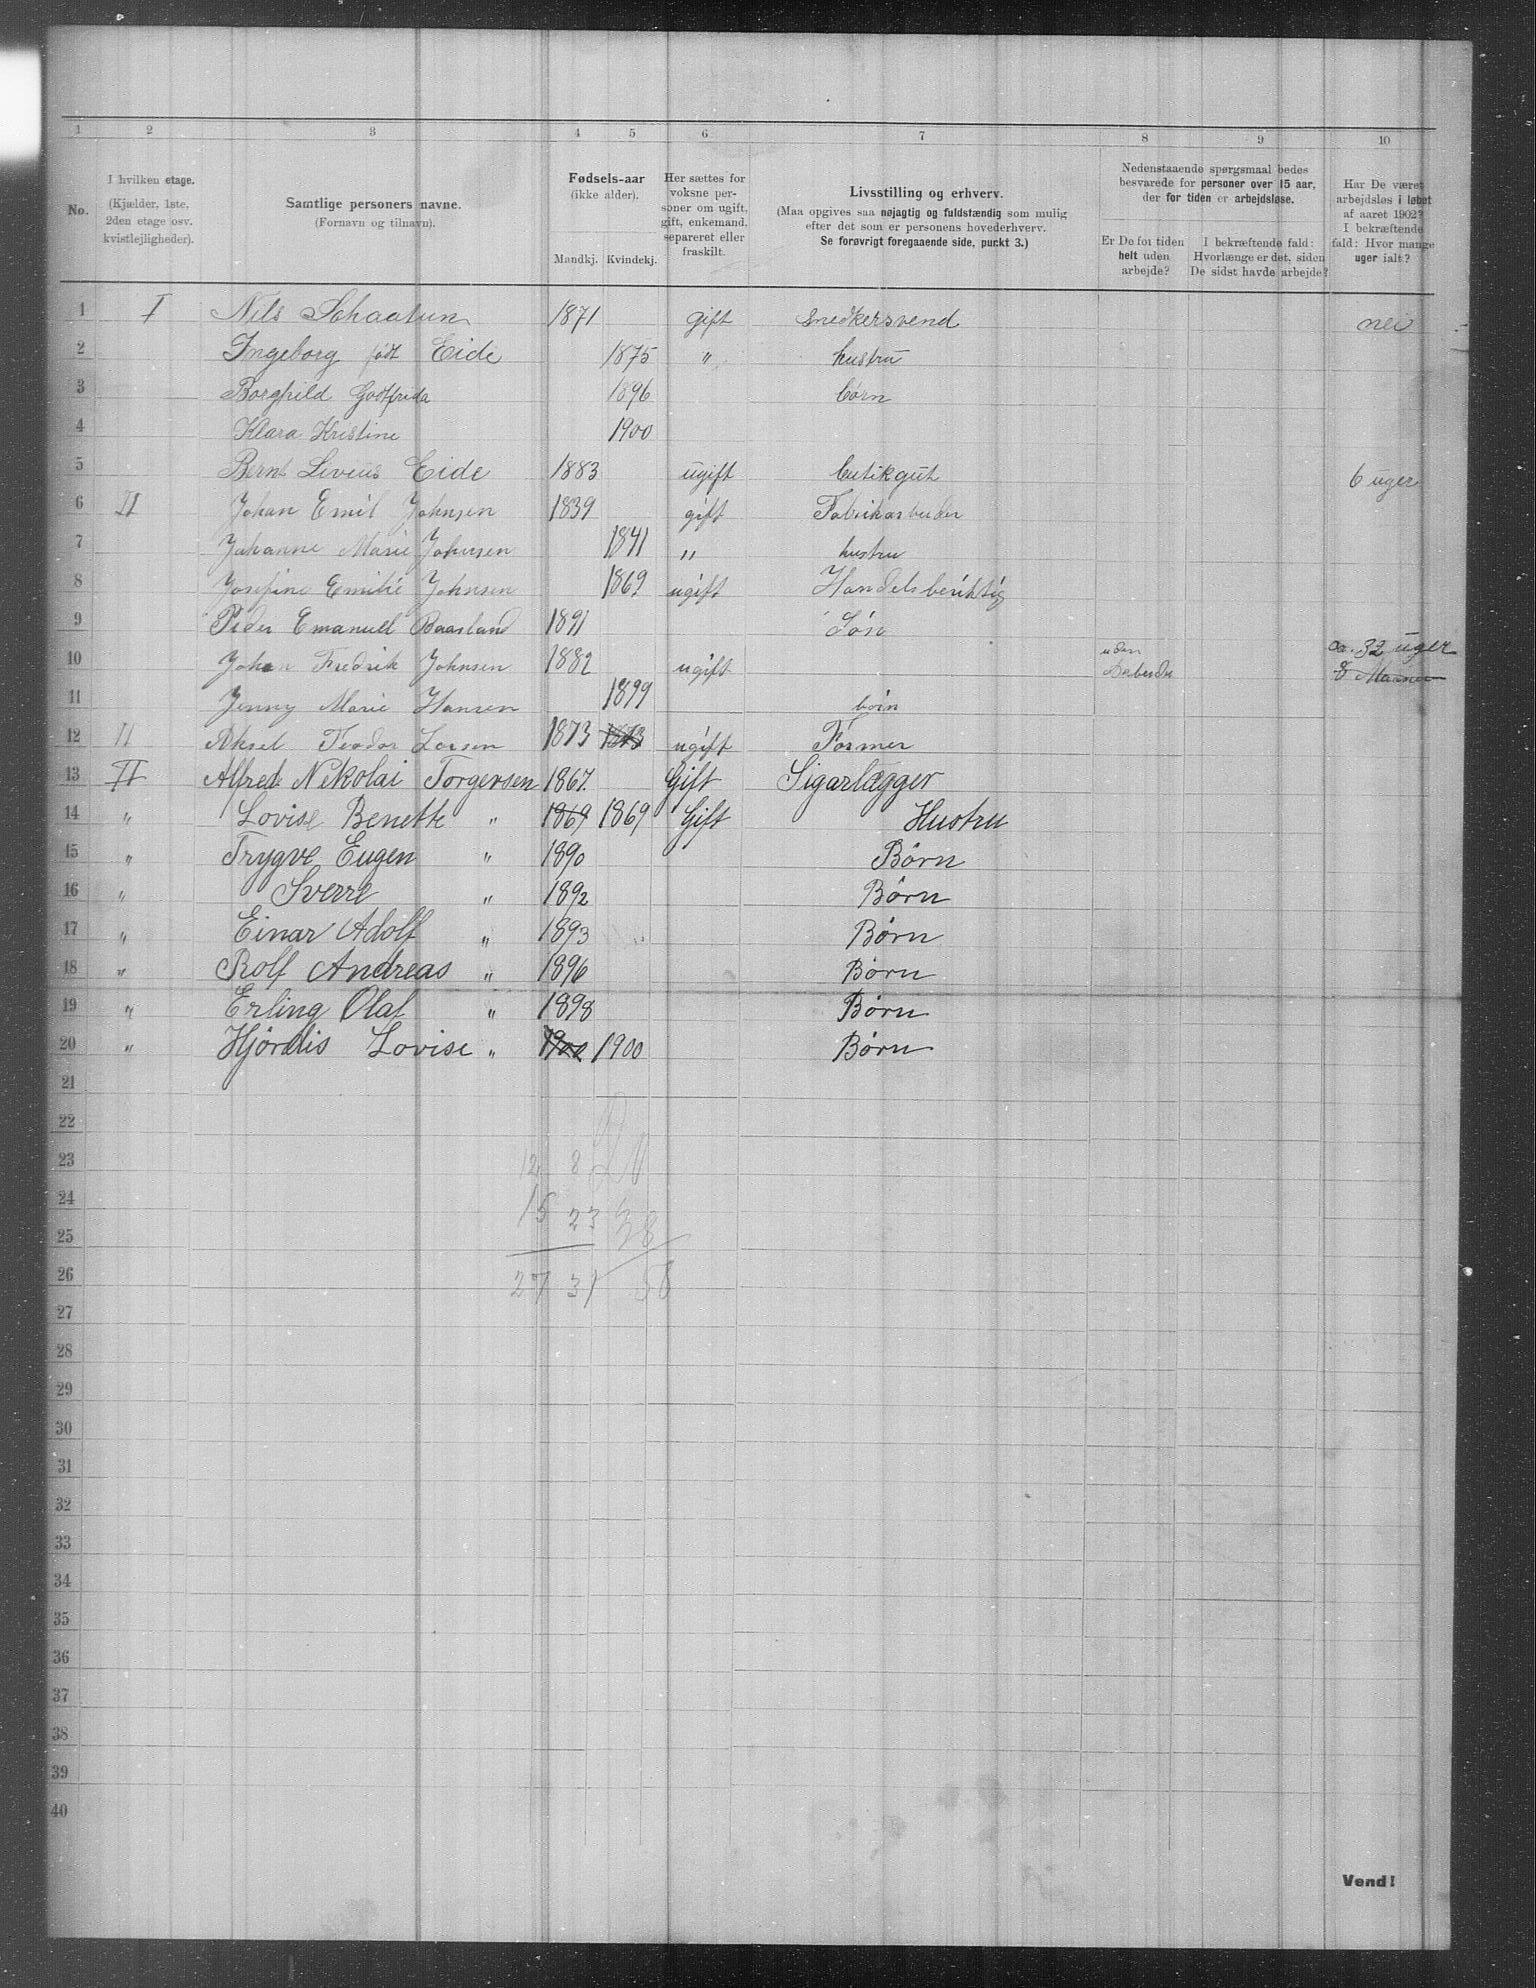 1 2 3 4 5 6 7 8 9 10
No. I hvilken etage. (Kjælder, 1ste, 2den etage osv. kvistlejligheder). Samtlige personers navne. (Fornavn og tilnavn). Fødsels-aar (ikke alder). Mandkj. Kvindekj. Her sættes for voksne personer om ugift, gift, enkemand, separeret eller fraskilt. Livsstilling og erhverv. (Maa opgives saa nøjagtig og fuldstændig som mulig efter det som er personens hovederhverv. Se forøvrigt foregaaende side, punkt 3.) Nedenstaaende spørgsmaal bedes besvarede for personer over 15 aar, der for tiden er arbejdsløse. Er De for tiden helt uden arbejde? I bekræftende fald: Hvorlænge er det, siden De sidst havde arbejde? Har De været arbejdsløs i løbet af aaret 1902? I bekræftende fald: Hvor mange uger ialt?
1 I Nils Schaatun 1871 gift Snedkersvend nei
2 Ingeborg født Eide 1875 " hustru
3 Borghild Godtfrida 1896 børn
4 Klara Kristine 1900
5 Bernt Eide 1883 ugift butikgut 6 uger
6 II Johan Emil Johnsen 1839 gift Fabrikarbeider
7 Johanne Marie Johnsen 1841 " hustru
8 Josefine Emilie Johnsen 1869 ugift Handelsberiktig
9 Peder Emanuel Baasland 1891 Søn
10 Johan Fredrik Johnsen 1882 ugift uden ca. 32 uger 8
11 Jenny Marie Hansen 1899 børn
12 II Aksel Teodor Larsen 1873 1873 ugift Former
13 II Alfred Nikolai Torgersen 1867. Gift Sigarlægger
14 " Lovise Benette " 1869 1869 Gift Hustru
15 " Trygve Eugen " 1890 Børn
16 " Sverre " 1892 Børn
17 " Einar Adolf " 1893 Børn
18 " Rolf Andreas " 1896 Børn
19 " Erling Olaf " 1898 Børn
20 " Hjördis Lovise " 1900 1900 Børn
21
22
23 12 8 20
24 15 23 38
25
26 27 31 58
27
28
29
30
31
32
33
34
35
36
37
38
39
40
Vend!